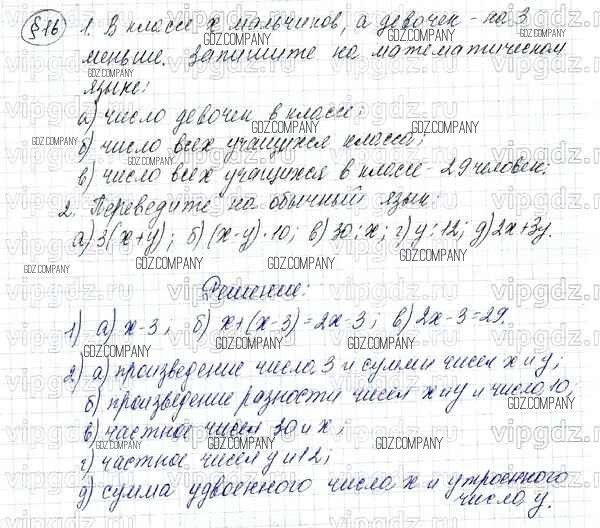 § 16
1. В классе x мальчиков, а девочек - на 3
меньше. Запишите на математическом
языке:
а) число девочек в классе;
б) число всех учащихся класса;
в) число всех учащихся в классе - 29 человек:
2. Переведите на обычный язык:
а) 3(x+y); б) (x-y)·10; в) 30:x; г) y:12; д) 2x+3y.
Решение:
1) а) x-3; б) x+(x-3)=2x-3; в) 2x-3=29.
2) а) произведение числа 3 и суммы чисел x и y;
б) произведение разности чисел x и y и числа 10;
в) частное чисел 30 и x;
г) частное чисел y и 12;
д) сумма удвоенного числа x и утроенного
числа y.
GDZ.COMPANY
vipgdz.ru